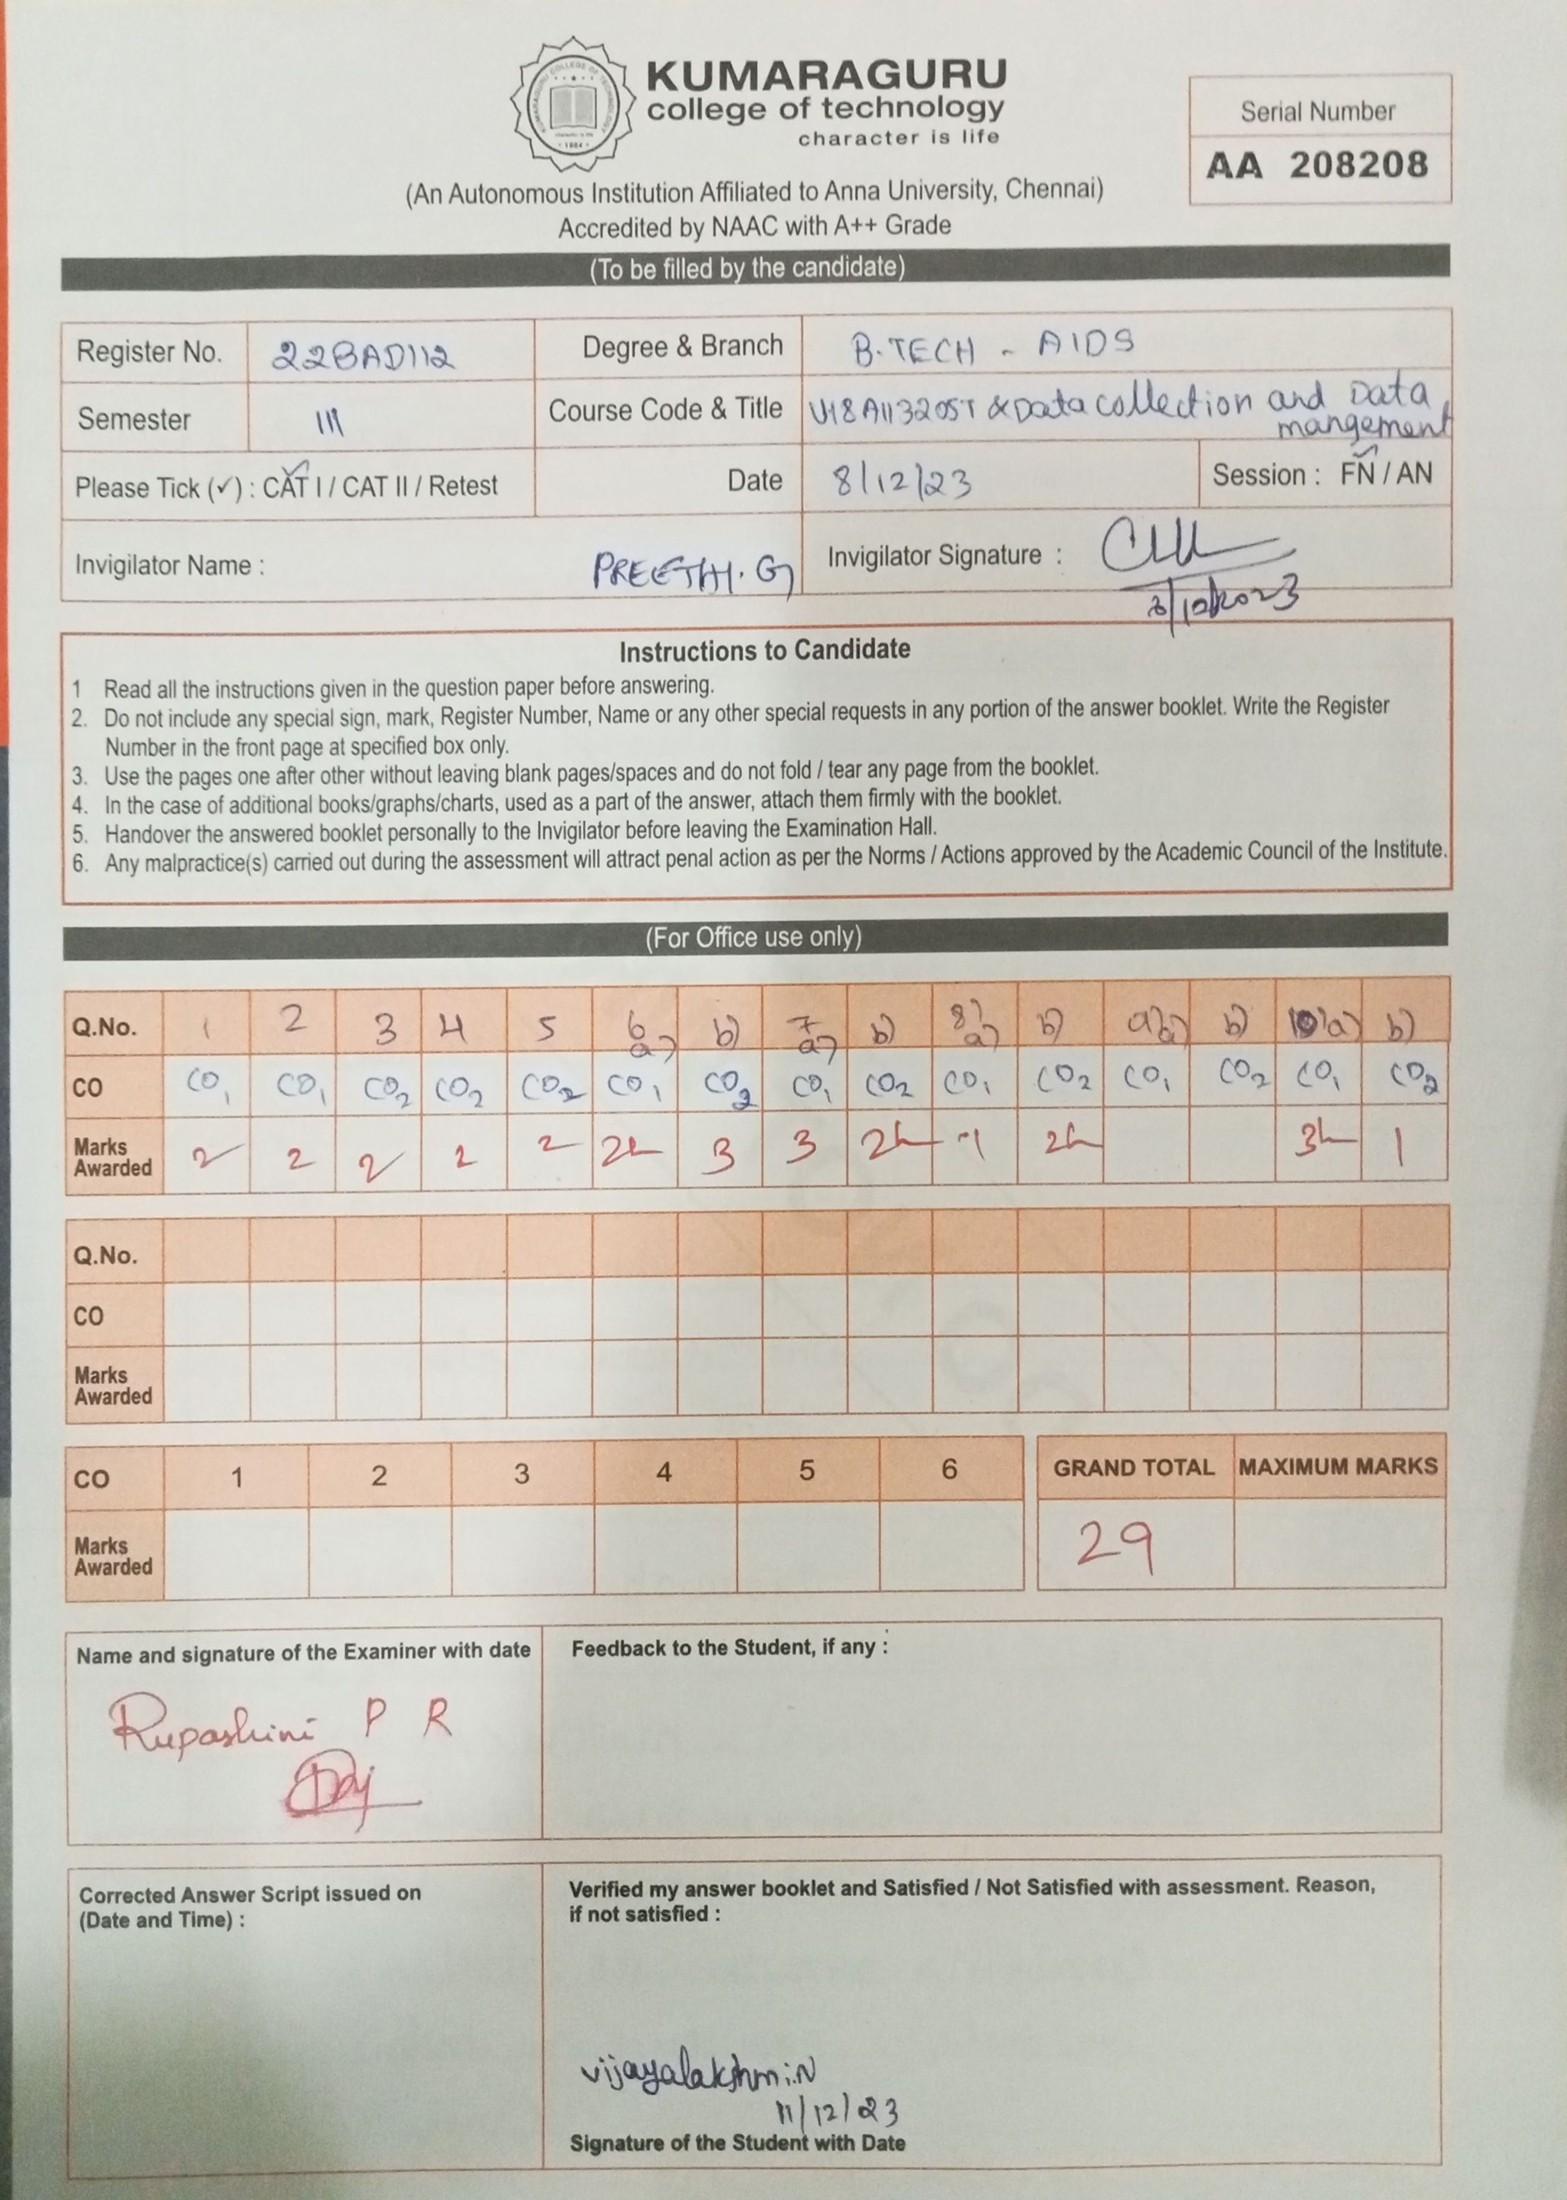 KUMARAGURU
college of technology
character is life
Serial Number
AA 208208
(An Autonomous Institution Affiliated to Anna University, Chennai)
Accredited by NAAC with A++ Grade
(To be filled by the candidate)
Register No. 22BAD112 Degree & Branch B.TECH - AIDS
Semester III Course Code & Title U18AII3205T & Data collection and Data
mangement
Please Tick (✓) : CAT I / CAT II / Retest Date 8/12/23 Session : FN / AN
Invigilator Name : PREETHI. G Invigilator Signature :
Instructions to Candidate
1 Read all the instructions given in the question paper before answering.
2. Do not include any special sign, mark, Register Number, Name or any other special requests in any portion of the answer booklet. Write the Register
Number in the front page at specified box only.
3. Use the pages one after other without leaving blank pages/spaces and do not fold / tear any page from the booklet.
4. In the case of additional books/graphs/charts, used as a part of the answer, attach them firmly with the booklet.
5. Handover the answered booklet personally to the Invigilator before leaving the Examination Hall.
6. Any malpractice(s) carried out during the assessment will attract penal action as per the Norms / Actions approved by the Academic Council of the Institute.
(For Office use only)
Q.No. 1 2 3 4 5 6 a) b) 7 a) b) 8) a) b) 9) a) b) 10) a) b)
CO CO1 CO1 CO2 CO2 CO2 CO1 CO2 CO1 CO2 CO1 CO2 CO1 CO2 CO1 CO2
Marks
Awarded 2 2 2 2 2 2½ 3 3 2½ 1 2½ 3½ 1
Q.No.
CO
Marks
Awarded
CO 1 2 3 4 5 6 GRAND TOTAL MAXIMUM MARKS
Marks
Awarded 29
Name and signature of the Examiner with date
Rupashini P R
Feedback to the Student, if any :
Corrected Answer Script issued on
(Date and Time) :
Verified my answer booklet and Satisfied / Not Satisfied with assessment. Reason,
if not satisfied :
vijayalakshmi.N
11/12/23
Signature of the Student with Date